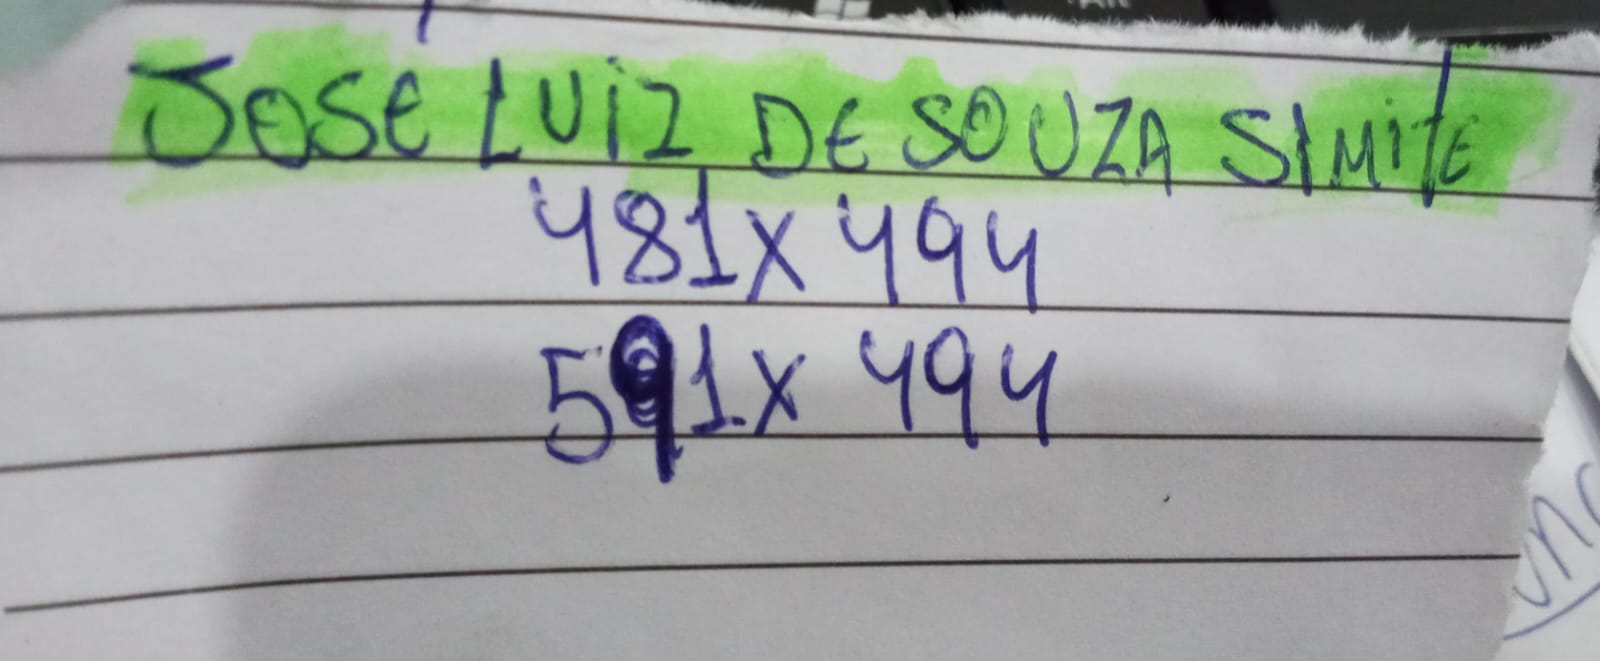 JOSÉ LUIZ DE SOUZA SIMITE
481X494
591X494